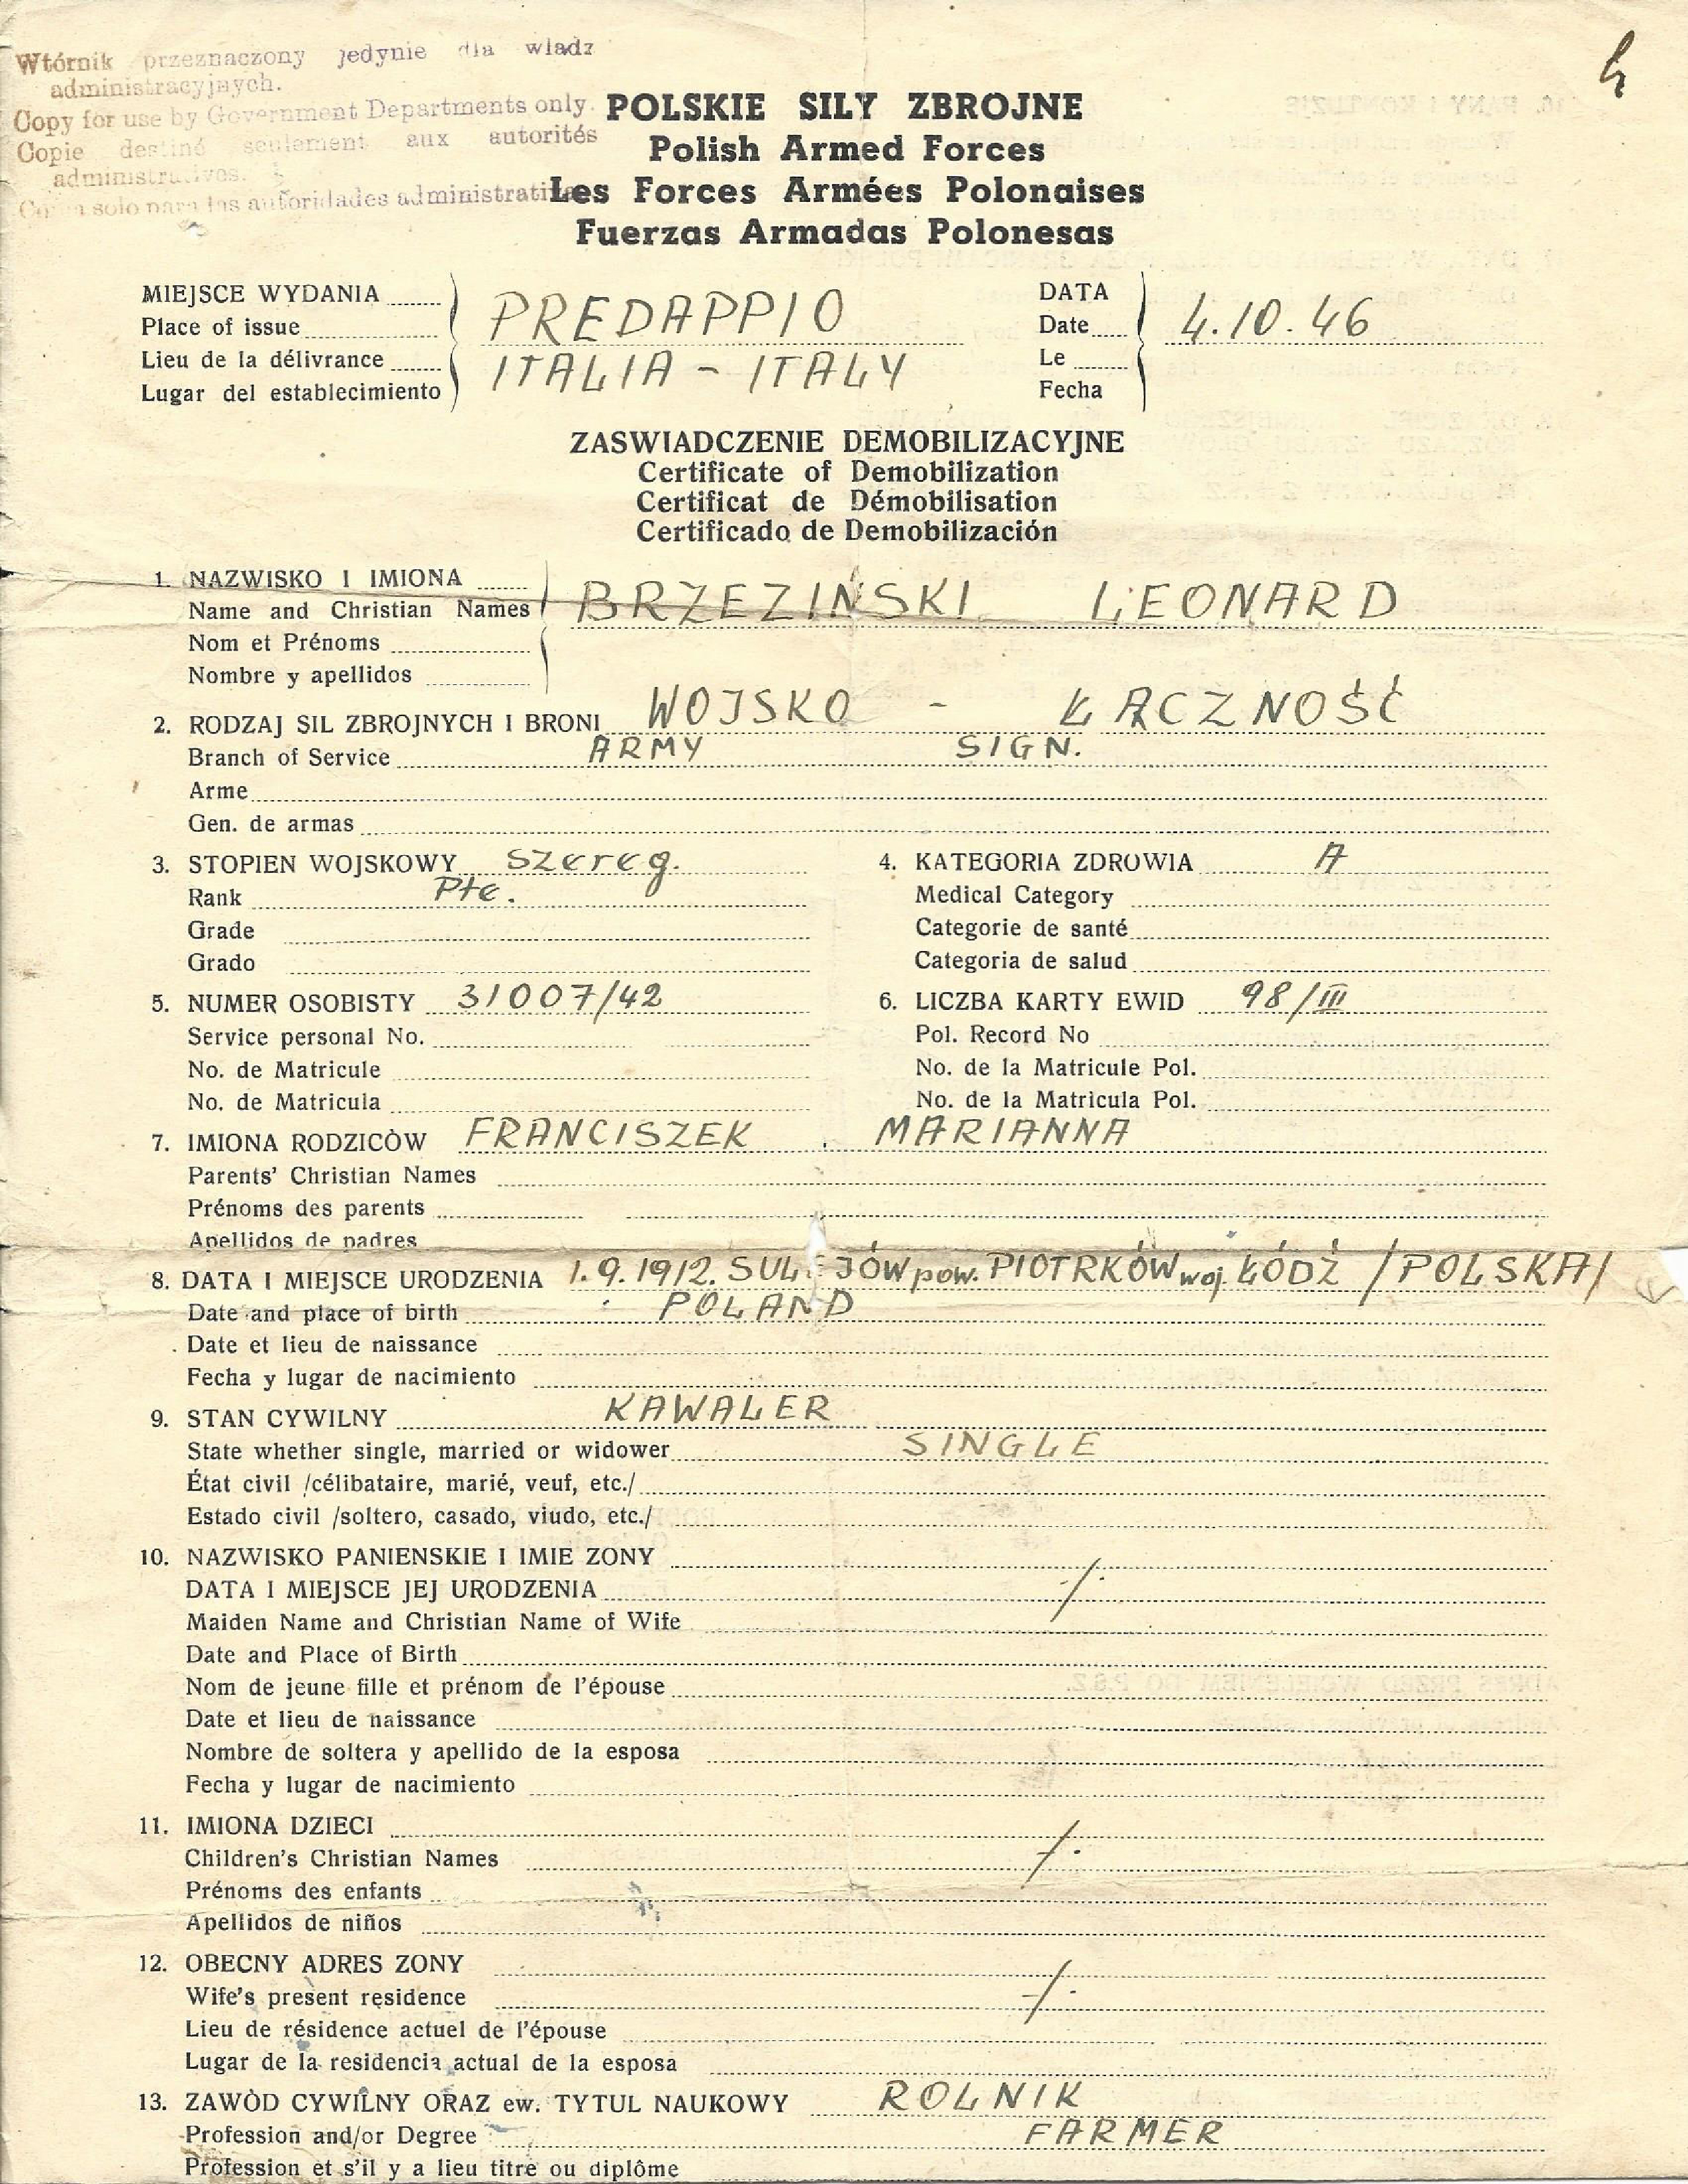 Wtórnik przeznaczony jedynie dla wladz
administracyjnych.
Copy for use by Government Departments only.
Copie destiné seulement aux autorités
administratives.
Copia solo para las autoridades administrativas
POLSKIE SILY ZBROJNE
Polish Armed Forces
Les Forces Armées Polonaises
Fuerzas Armadas Polonesas
MIEJSCE WYDANIA
Place of issue
Lieu de la délivrance
Lugar del establecimiento
PREDAPPIO
ITALIA - ITALY
DATA
Date
Le
Fecha
4.10.46
ZASWIADCZENIE DEMOBILIZACYJNE
Certificate of Demobilization
Certificat de Démobilisation
Certificado de Demobilización
1. NAZWISKO I IMIONA
Name and Christian Names
Nom et Prénoms
Nombre y apellidos
BRZEZIŃSKI LEONARD
2. RODZAJ SIL ZBROJNYCH I BRONI WOJSKO - ŁĄCZNOŚĆ
Branch of Service ARMY SIGN.
Arme
Gen. de armas
3. STOPIEN WOJSKOWY szereg.
Rank Pte.
Grade
Grado
4. KATEGORIA ZDROWIA A
Medical Category
Categorie de santé
Categoria de salud
5. NUMER OSOBISTY 31007/42
Service personal No.
No. de Matricule
No. de Matricula
6. LICZBA KARTY EWID 98/III
Pol. Record No
No. de la Matricule Pol.
No. de la Matricula Pol.
7. IMIONA RODZICÒW FRANCISZEK . MARIANNA
Parents' Christian Names
Prénoms des parents
Apellidos de padres
8. DATA I MIEJSCE URODZENIA 1.9.1912. SULEJÓW pow. PIOTRKÓW woj. ŁÓDŹ /POLSKA/
Date and place of birth POLAND
Date et lieu de naissance
Fecha y lugar de nacimiento
9. STAN CYWILNY KAWALER
State whether single, married or widower SINGLE
État civil /célibataire, marié, veuf, etc./
Estado civil /soltero, casado, viudo, etc./
10. NAZWISKO PANIENSKIE I IMIE ZONY
DATA I MIEJSCE JEJ URODZENIA -/.
Maiden Name and Christian Name of Wife
Date and Place of Birth
Nom de jeune fille et prénom de l'épouse
Date et lieu de naissance
Nombre de soltera y apellido de la esposa
Fecha y lugar de nacimiento
11. IMIONA DZIECI
Children's Christian Names -/.
Prénoms des enfants
Apellidos de niños
12. OBECNY ADRES ZONY
Wife's present residence -/.
Lieu de résidence actuel de l'épouse
Lugar de la residencia actual de la esposa
13. ZAWÒD CYWILNY ORAZ ew. TYTUL NAUKOWY ROLNIK
Profession and/or Degree FARMER
Profession et s'il y a lieu titre ou diplôme